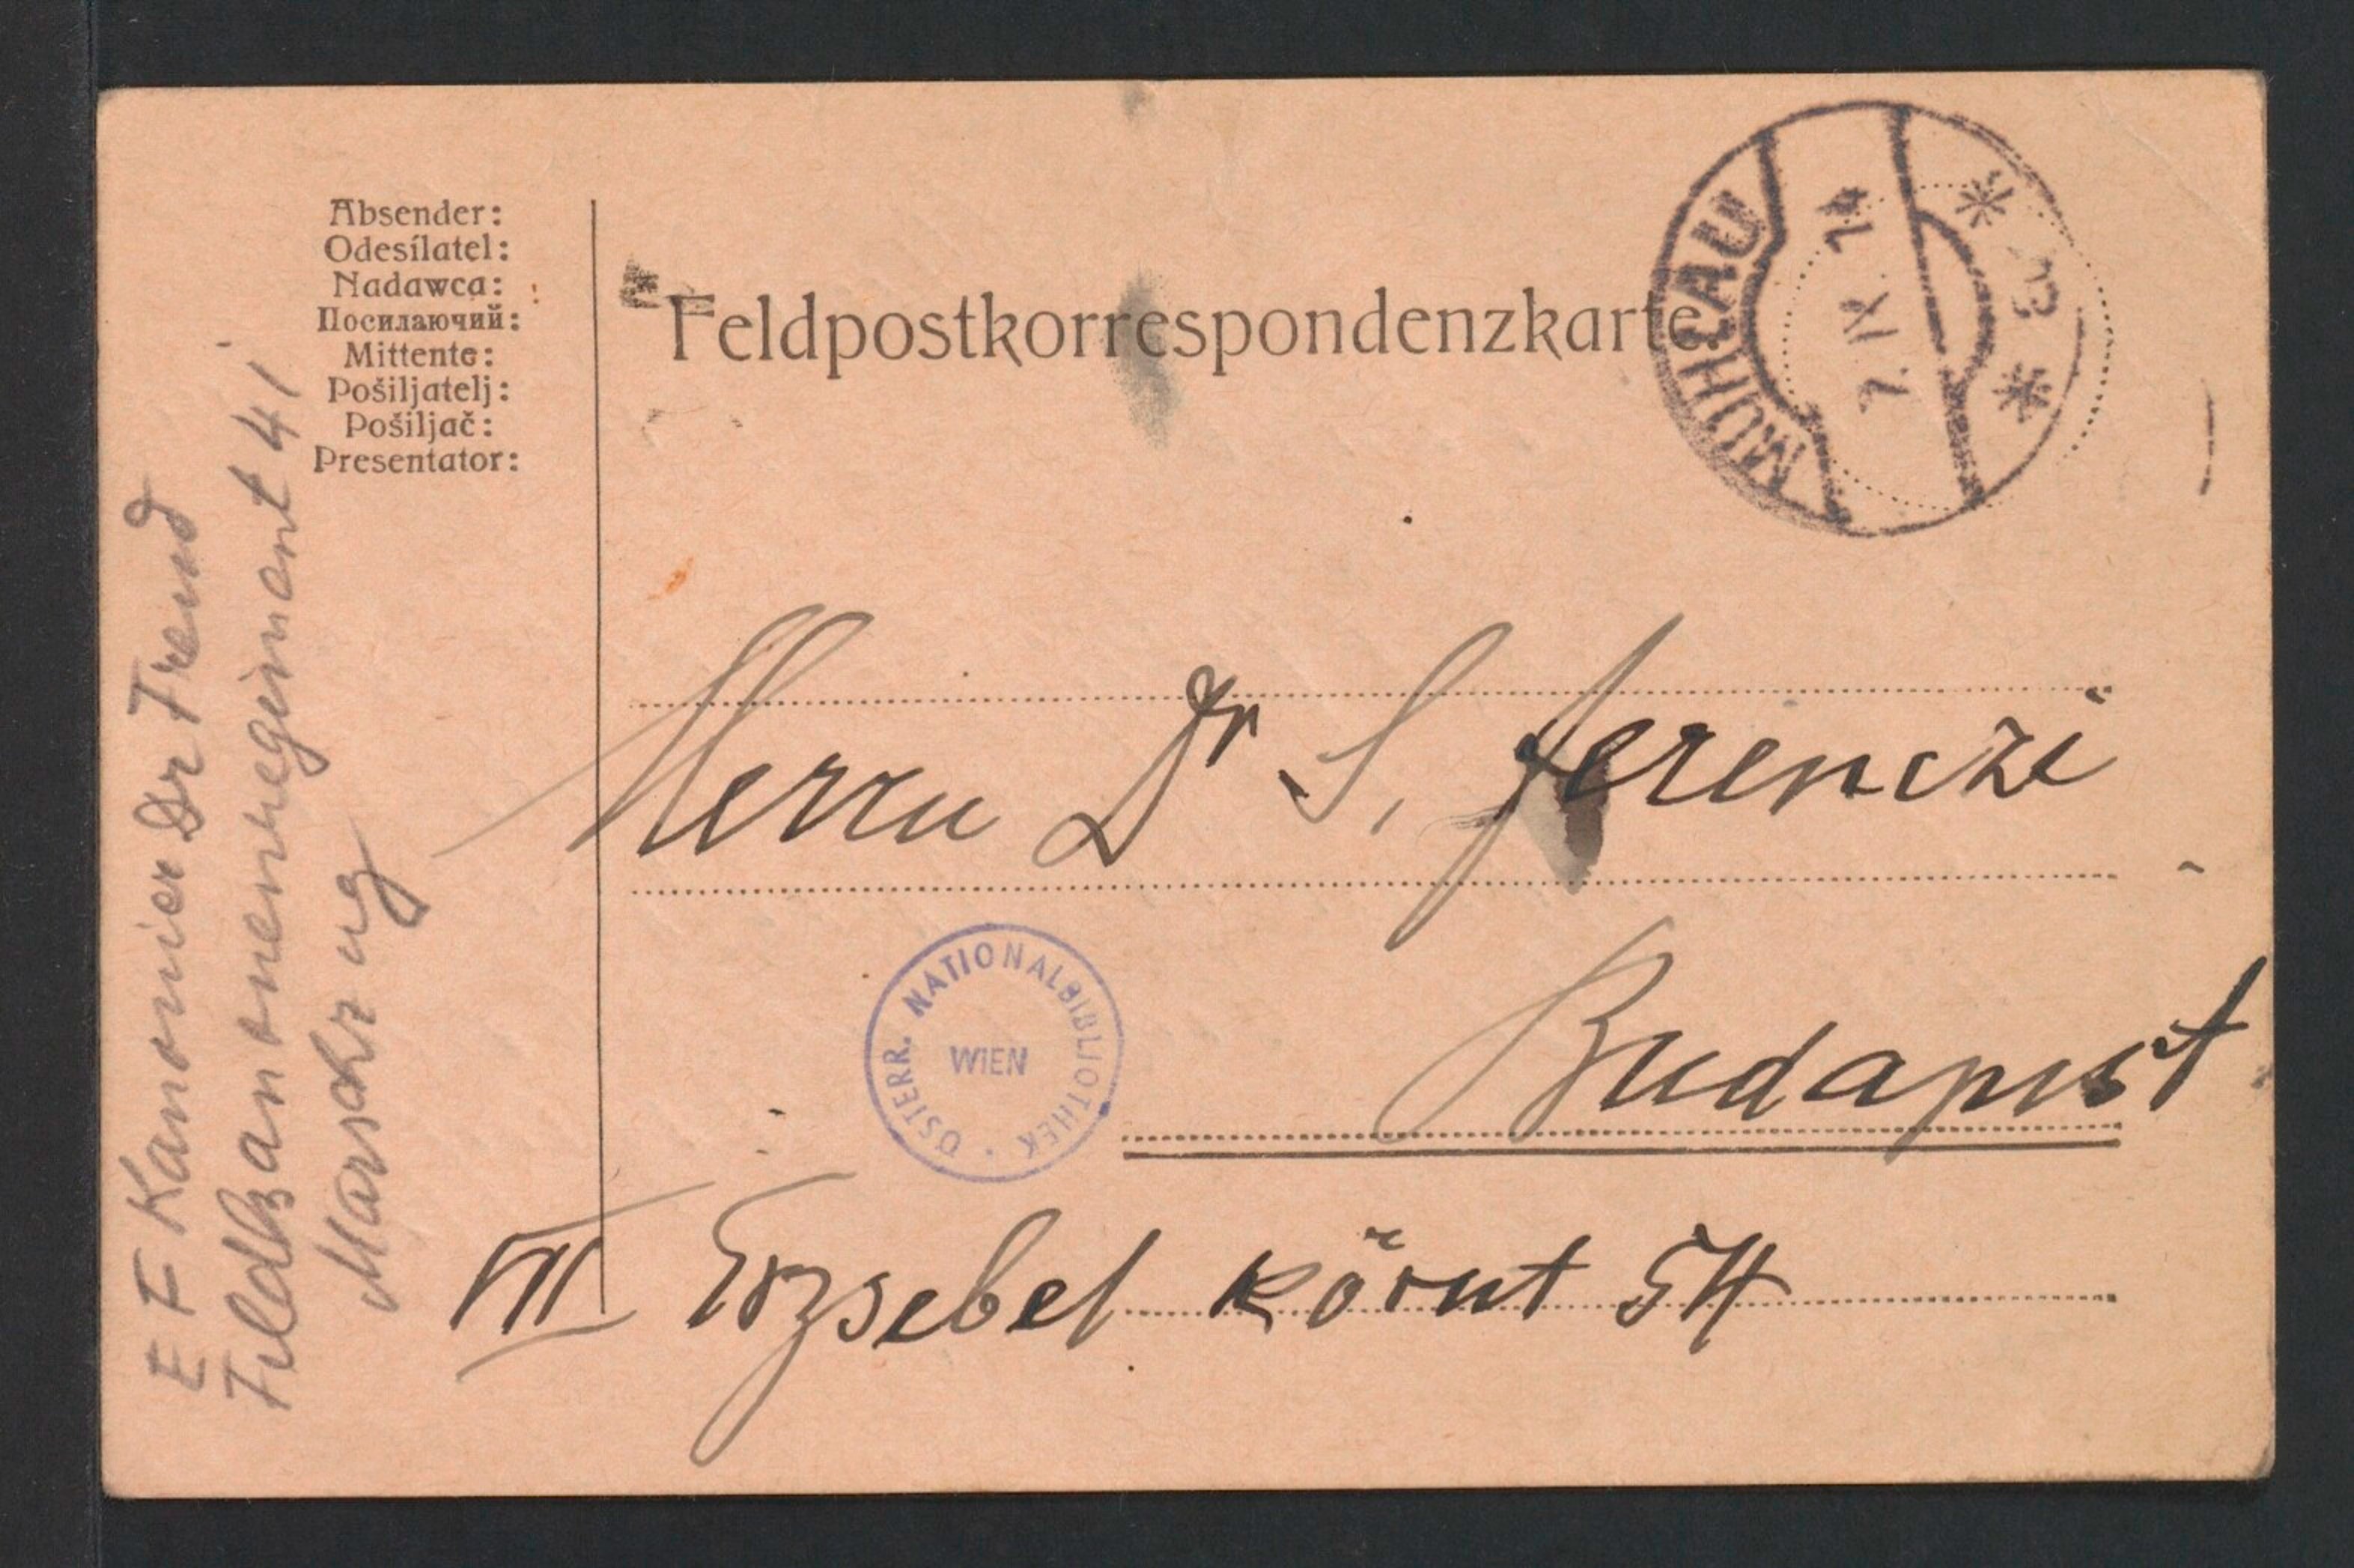 Absender:
Odesílatel:
Nadawca:
Посилаючий:
Mittente:
Pošiljatelj:
Pošiljač:
Presentator:
E F Kanonier Dr Freud
Feldkanonenregiment 41
Marschzug
Feldpostkorrespondenzkarte
MÜHLAU
7. IX. 14
Herrn Dr S. Ferenczi
Budapest
VII Erzsebet körut 54
ÖSTERR. NATIONALBIBLIOTHEK
WIEN